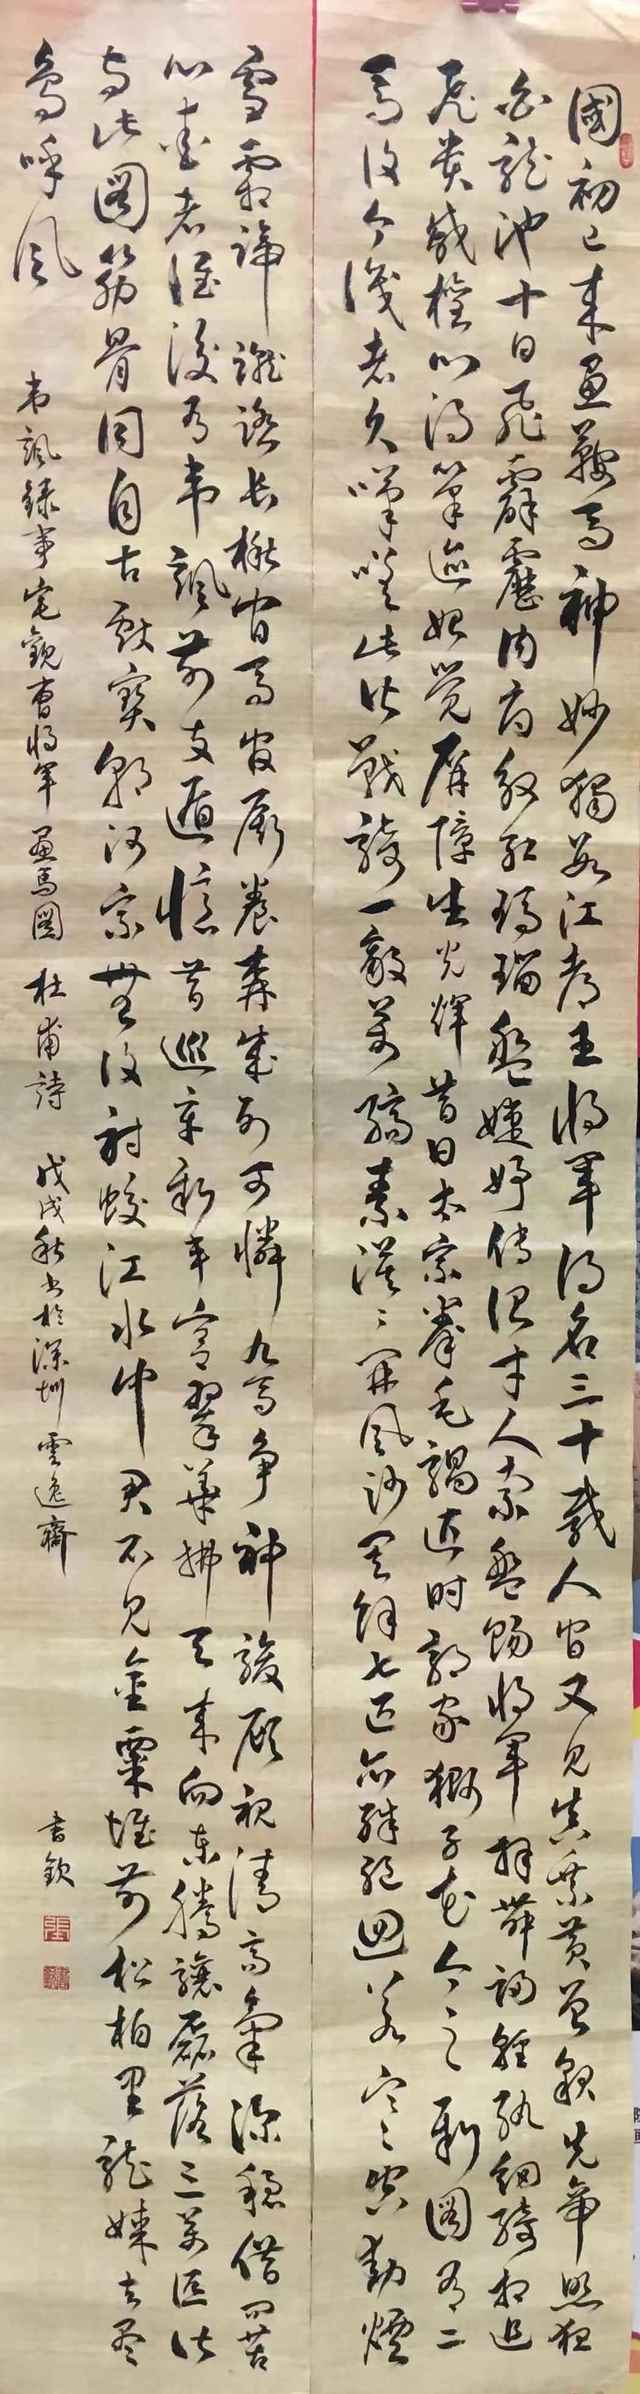 國初已来畫鞍馬神妙獨數江都王將軍得名三十載人間又見真乘黃曾貌先帝照夜
白龍池十日飛霹靂內府殷紅瑪瑙盤婕妤傳詔才人索盤賜將軍拜舞歸輕紈細綺相追
飛貴戚權門得筆迹始覺屏障生光輝昔日太宗拳毛騧近時郭家獅子花今之新圖有二
馬復令識者久嘆嗟此皆戰騎一敵萬縞素漠〻開風沙其餘七匹亦殊絕迥若寒空動煙
雪霜蹄蹴踏長楸間馬官廝養森成列可憐九馬爭神駿顧視清高氣深穩借問苦
心愛者誰後有韋諷前支遁憶昔巡幸新豐宮翠華拂天来向東騰驤磊落三萬匹皆
與此圖筋骨同自古獻寶朝河宗無復射蛟江水中君不見金粟堆前松柏里龍媒去盡
鳥呼風
韋諷錄事宅觀曹將軍畫馬圖 杜甫詩 戊戌秋書於深圳雲逸齋
書欽